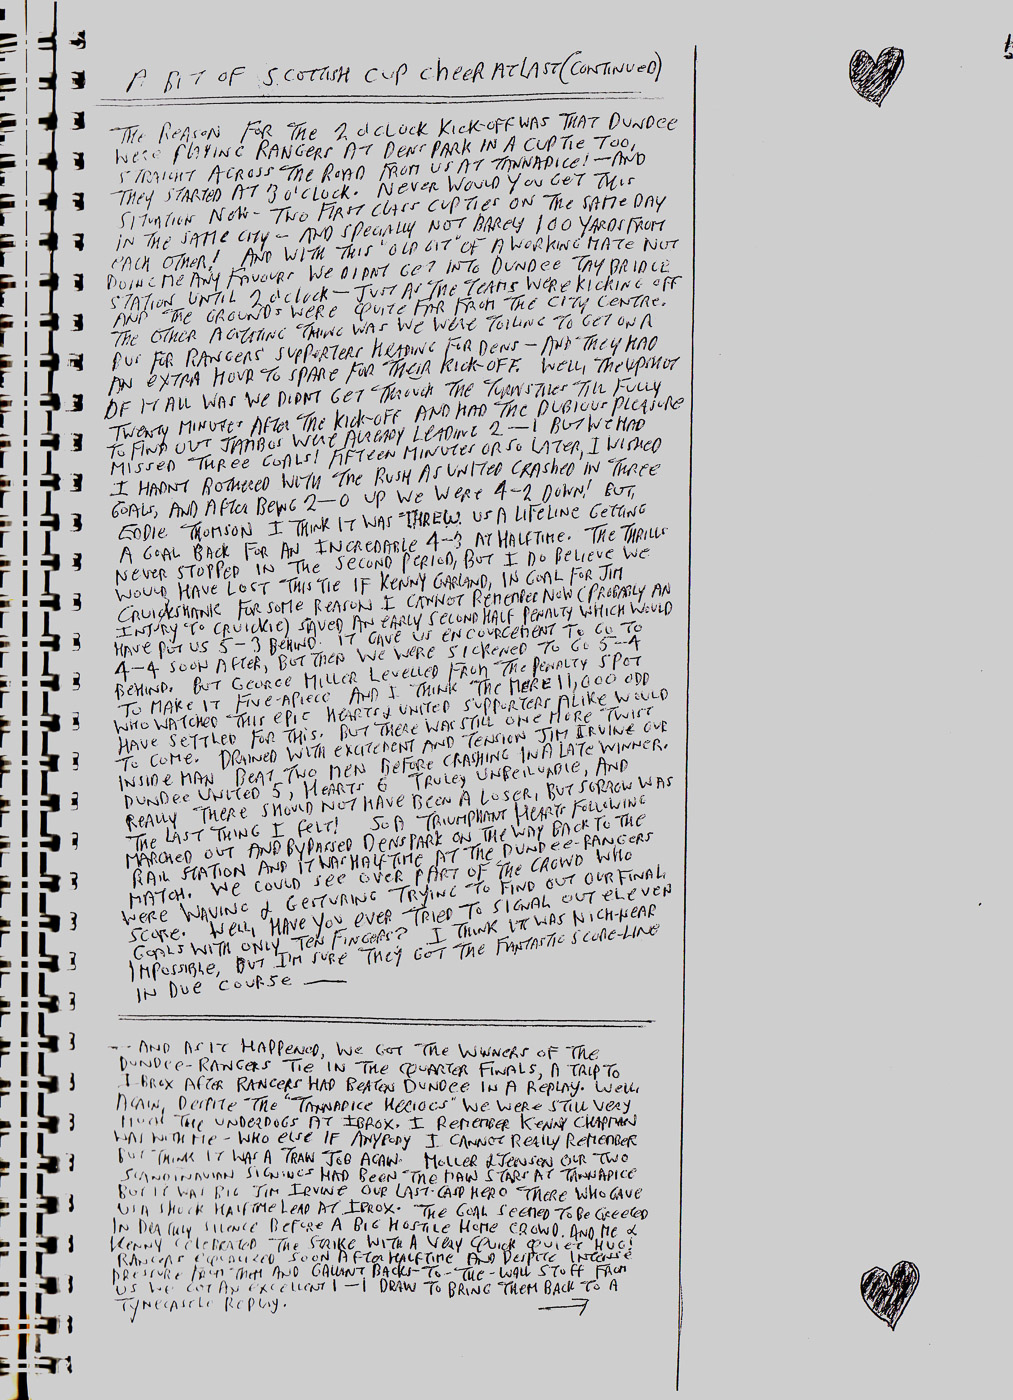 A BIT OF SCOTTISH CUP CHEER AT LAST (CONTINUED)
THE REASON FOR THE 2 O'CLOCK KICK-OFF WAS THAT DUNDEE
WERE PLAYING RANGERS AT DENS PARK IN A CUP TIE TOO,
STRAIGHT ACROSS THE ROAD FROM US AT TANNADICE! - AND
THEY STARTED AT 3 O'CLOCK. NEVER WOULD YOU GET THIS
SITUATION NOW - TWO FIRST CLASS CUP TIES ON THE SAME DAY
IN THE SAME CITY - AND SPECIALLY NOT BARELY 100 YARDS FROM
EACH OTHER! AND WITH THIS "OLD GIT" OF A WORKING MATE NOT
DOING ME ANY FAVOURS WE DIDNT GET INTO DUNDEE TAY BRIDGE
STATION UNTIL 2 O'CLOCK - JUST AS THE TEAMS WERE KICKING OFF
AND THE GROUNDS WERE QUITE FAR FROM THE CITY CENTRE.
THE OTHER AGITATING THING WAS WE WERE TOILING TO GET ON A
BUS FOR RANGERS SUPPORTERS HEADING FOR DENS - AND THEY HAD
AN EXTRA HOUR TO SPARE FOR THEIR KICK-OFF. WELL, THE UPSHOT
OF IT ALL WAS WE DIDNT GET THROUGH THE TURNSTILES TILL FULLY
TWENTY MINUTES AFTER THE KICK-OFF AND HAD THE DUBIOUS PLEASURE
TO FIND OUT JAMBOS WERE ALREADY LEADING 2-1 BUT WE HAD
MISSED THREE GOALS! FIFTEEN MINUTES OR SO LATER, I WISHED
I HADNT BOTHERED WITH THE RUSH AS UNITED CRASHED IN THREE
GOALS, AND AFTER BEING 2-0 UP WE WERE 4-2 DOWN! BUT,
EDDIE THOMSON I THINK IT WAS THREW US A LIFELINE GETTING
A GOAL BACK FOR AN INCREDABLE 4-3 AT HALFTIME. THE THRILLS
NEVER STOPPED IN THE SECOND PERIOD, BUT I DO BELIEVE WE
WOULD HAVE LOST THIS TIE IF KENNY GARLAND, IN GOAL FOR JIM
CRUICKSHANK FOR SOME REASON I CANNOT REMEMBER NOW (PROBABLY AN
INJURY TO CRUICKIE) SAVED AN EARLY SECOND HALF PENALTY WHICH WOULD
HAVE PUT US 5-3 BEHIND. IT GAVE US ENCOURCEMENT TO GO TO
4-4 SOON AFTER, BUT THEN WE WERE SICKENED TO GO 5-4
BEHIND. BUT GEORGE MILLER LEVELLED FROM THE PENALTY SPOT
TO MAKE IT FIVE-APIECE AND I THINK THE MERE 11,000 ODD
WHO WATCHED THIS EPIC HEARTS & UNITED SUPPORTERS ALIKE WOULD
HAVE SETTLED FOR THIS. BUT THERE WAS STILL ONE MORE TWIST
TO COME. DRAINED WITH EXCITEMENT AND TENSION JIM IRVINE OUR
INSIDE MAN BEAT TWO MEN BEFORE CRASHING IN A LATE WINNER.
DUNDEE UNITED 5, HEARTS 6 TRULEY UNBEILVABLE, AND
REALLY THERE SHOULD NOT HAVE BEEN A LOSER, BUT SORROW WAS
THE LAST THING I FELT! SO A TRIUMPHANT HEARTS FOLLOWING
MARCHED OUT AND BYPASSED DENS PARK ON THE WAY BACK TO THE
RAIL STATION AND IT WAS HALF-TIME AT THE DUNDEE-RANGERS
MATCH. WE COULD SEE OVER PART OF THE CROWD WHO
WERE WAVING & GESTURING TRYING TO FIND OUT OUR FINAL
SCORE. WELL, HAVE YOU EVER TRIED TO SIGNAL OUT ELEVEN
GOALS WITH ONLY TEN FINGERS? I THINK IT WAS NIGH-NEAR
IMPOSSIBLE, BUT I'M SURE THEY GOT THE FANTASTIC SCORE-LINE
IN DUE COURSE —
-- AND AS IT HAPPENED, WE GOT THE WINNERS OF THE
DUNDEE-RANGERS TIE IN THE QUARTER FINALS, A TRIP TO
IBROX AFTER RANGERS HAD BEATEN DUNDEE IN A REPLAY. WELL,
AGAIN, DESPITE THE "TANNADICE HEROICS" WE WERE STILL VERY
MUCH THE UNDERDOGS AT IBROX. I REMEMBER KENNY CHAPMAN
WAS WITH ME - WHO ELSE IF ANYBODY I CANNOT REALLY REMEMBER
BUT THINK IT WAS A TRAIN JOB AGAIN. MOLLER & JENSON OUR TWO
SCANDINAVIAN SIGNINGS HAD BEEN THE MAIN STARS AT TANNADICE
BUT IT WAS BIG JIM IRVINE OUR LAST-GASP HERO THERE WHO GAVE
US A SHOCK HALFTIME LEAD AT IBROX. THE GOAL SEEMED TO BE GREETED
IN DEATHLY SILENCE BEFORE A BIG HOSTILE HOME CROWD. AND ME &
KENNY CELEBRATED THE STRIKE WITH A VERY QUICK QUIET HUG!
RANGERS EQUALIZED SOON AFTER HALFTIME AND DESPITE INTENSE
PRESSURE FROM THEM AND GALLANT BACKS-TO-THE-WALL STUFF FROM
US WE GOT AN EXCELLENT 1-1 DRAW TO BRING THEM BACK TO A
TYNECASTLE REPLAY. →